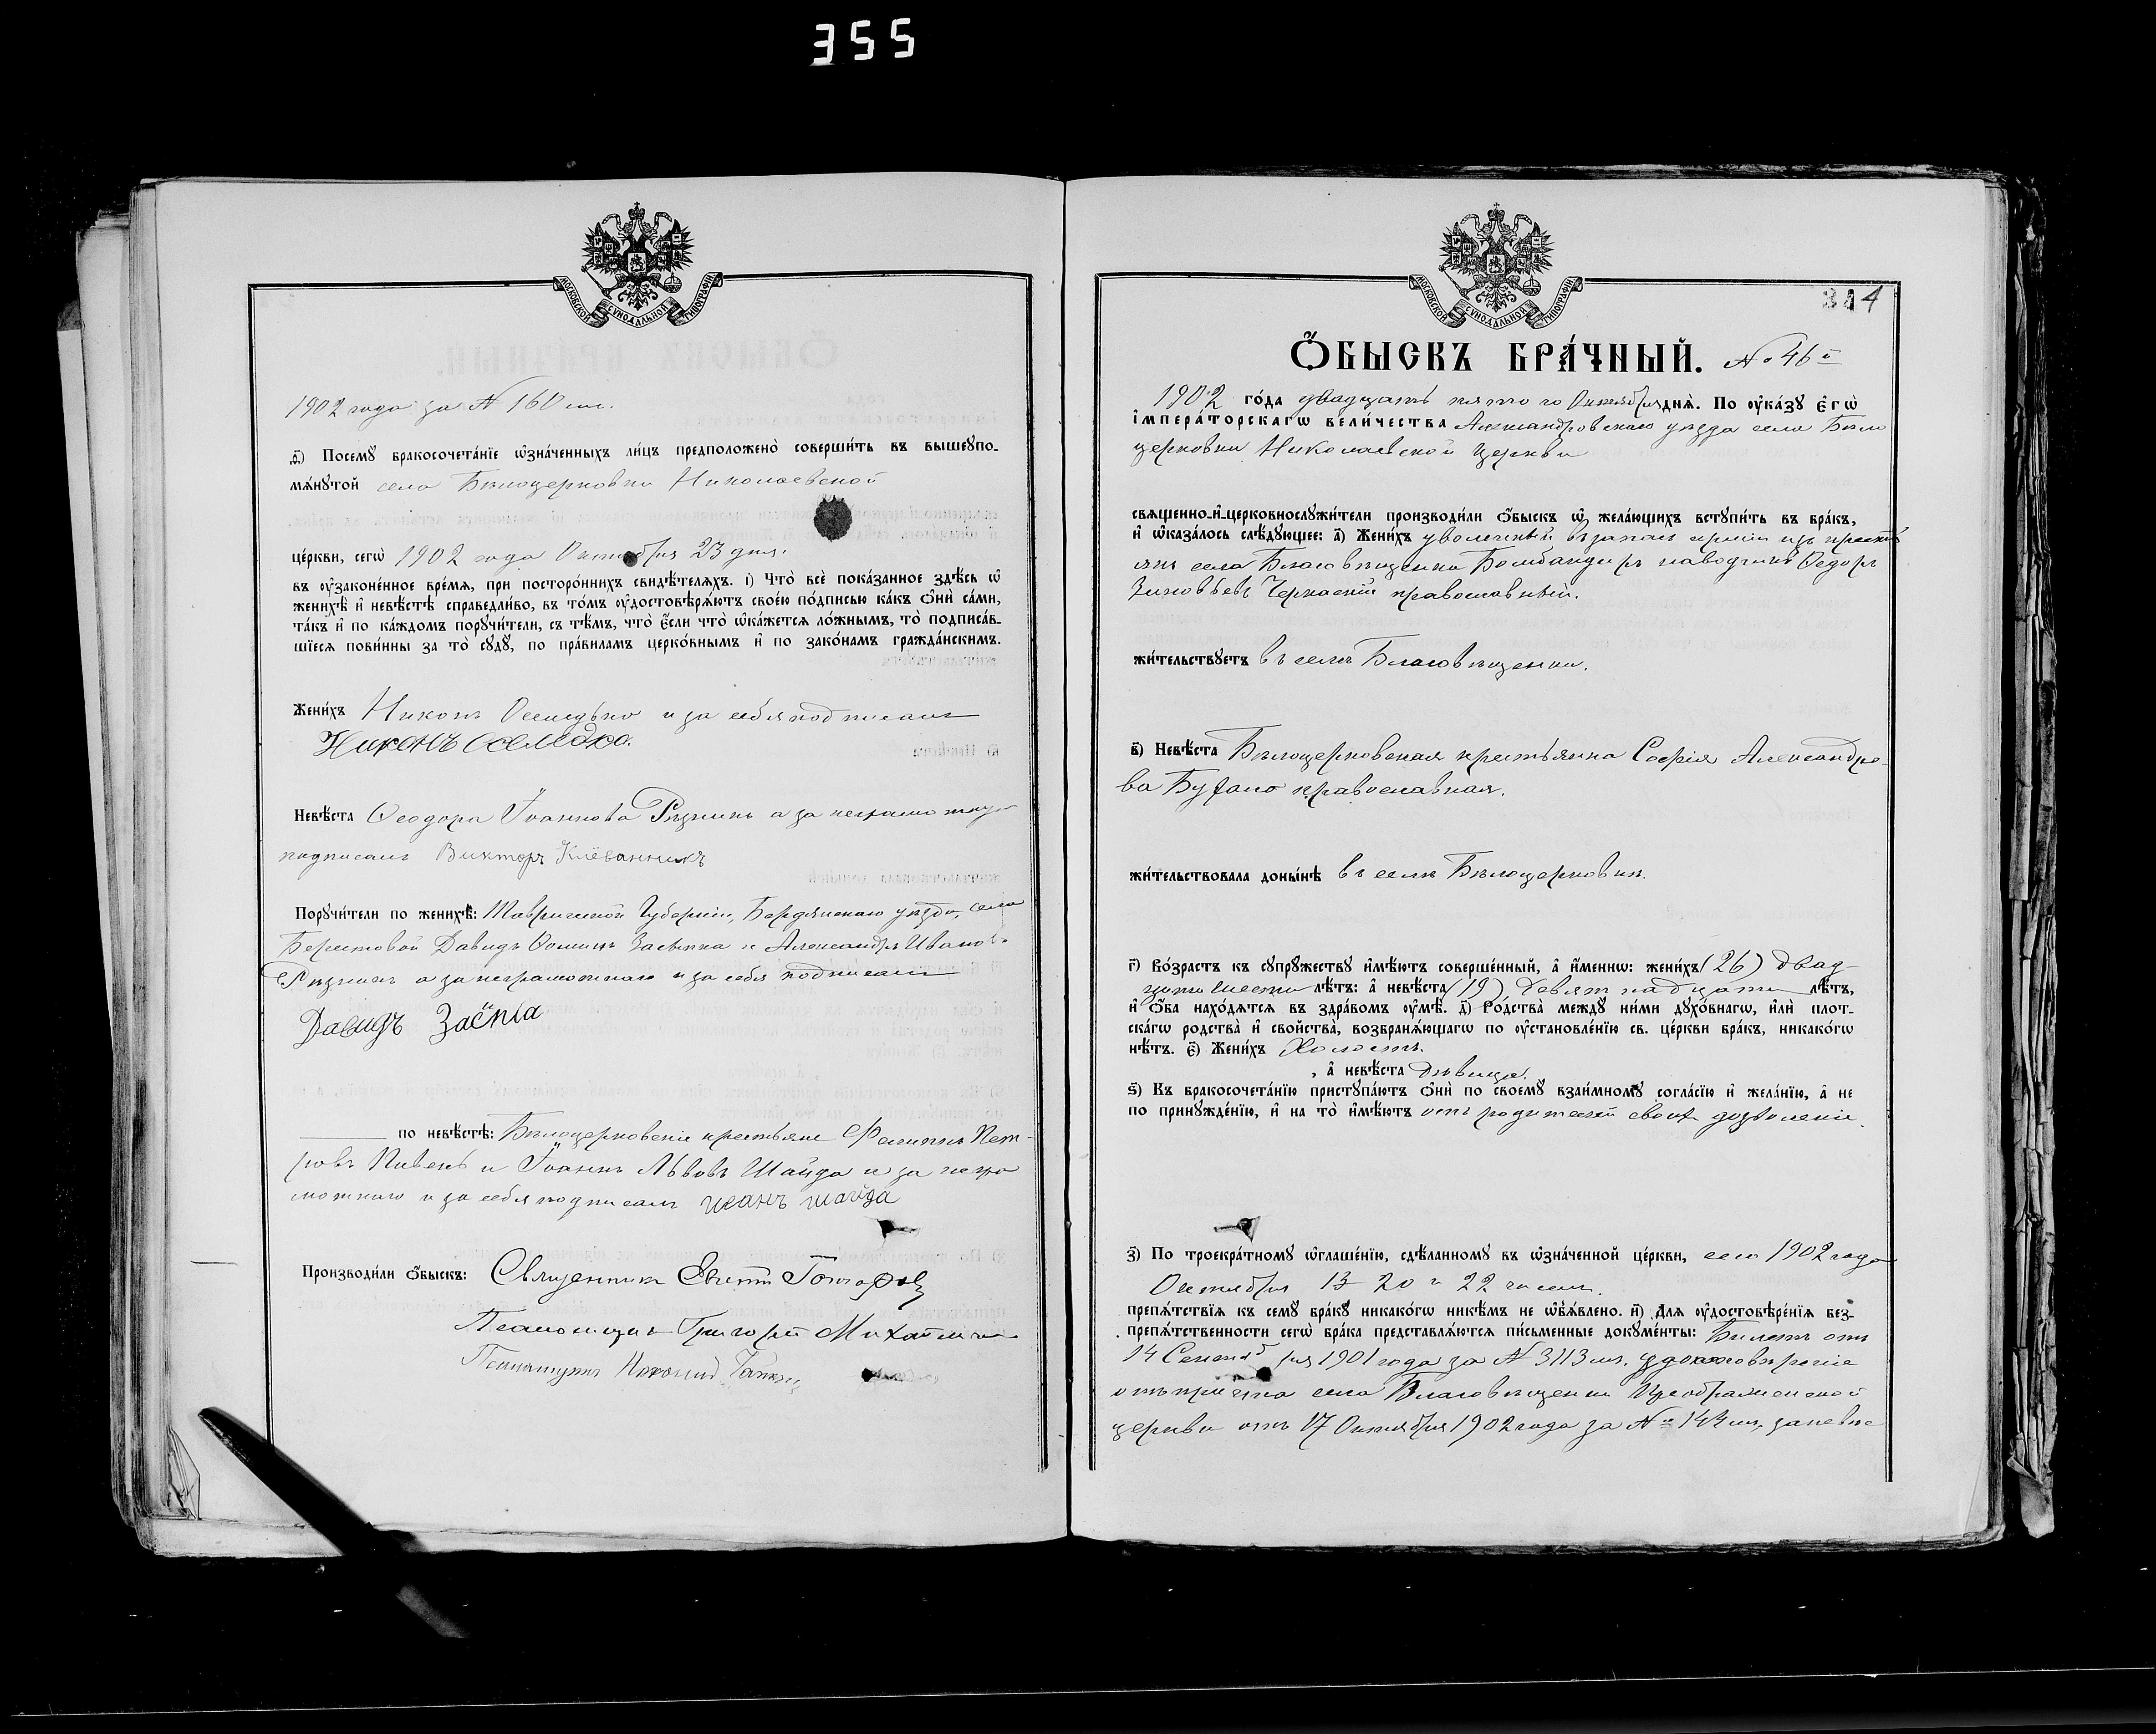 355
МОСКОВСКОЙ СѴНОДАЛЬНОЙ ТИПОГРАФІИ
1902 года за № 160 мъ.
ѳ҃) Посемꙋ бракосочета́нїе ѡ҆зна́ченныхъ ли́цъ предположено̀ соверши́ть въ вышеꙋпо-
мѧ́нꙋтой села Бѣлоцерковки Николаевской
це́ркви, сегѡ̀ 1902 года Октября 23 дня.
въ ᲂу҆зако́ненное вре́мѧ, при посторо́ннихъ свидѣ́телѧхъ. і҃) Что̀ всѐ пока́занное здѣ́сь ѡ҆
женихѣ̀ и҆ невѣ́стѣ справедли́во, въ то́мъ ᲂу҆достовѣрѧ́ютъ свое́ю по́дписью ка́къ ѻ҆нѝ са́ми,
та́къ и҆ по ка́ждомъ порꙋчи́тели, съ тѣ́мъ, что̀ є҆́сли что̀ ѡ҆ка́жетсѧ ло́жнымъ, то̀ подписа́в-
шїесѧ пови́нны за то̀ сꙋдꙋ̀, по пра́виламъ церко́внымъ и҆ по зако́намъ гражда́нскимъ.
Жени́хъ Никонъ Оселедько и за себя подписалъ
Никонъ Оселедко.
Невѣ́ста Ѳеодора Іоаннова Рѣзникъ а за неграмотную
подписалъ Викторъ
Порꙋчи́тели по женихѣ̀: Таврической Губерніи, Бердянскаго уѣзда, села
Берестовой Давидъ Ѳоминъ Засыпка и Александръ Ивановъ
Рѣзникъ а за неграмотнаго и за себя подписалъ
Давидъ
по невѣ́стѣ: Бѣлоцерковскіе крестьяне Филиппъ Пет-
ровъ Пивень и Іоаннъ Львовъ Шайда и за негра
мотнаго и за себя подписалъ Иванъ Шайда
Производи́ли ѻ҆́быскъ: Священникъ
Псаломщикъ Григорій
344
Ѻ҆́БЫСКЪ БРА́ЧНЫЙ. № 46й
1902 го́да двадцать пятого Октября днѧ̀. По ᲂу҆ка́зꙋ є҆гѡ̀
і҆мпера́торскагѡ вели́чества Александровскаго уѣзда села Бѣло
церковки Николаевской церкви
свѧщенно-и҆-церковнослꙋжи́тели производи́ли ѻ҆́быскъ ѡ҆ жела́ющихъ встꙋпи́ть въ бра́къ,
и҆ ѡ҆каза́лось слѣ́дꙋющее: а҃) Жени́хъ уволенный въ запасъ арміи изъ кресть
янъ села Благовѣщенки Бомбандиръ наводчикъ Ѳедоръ
Зиновьевъ Черкаскій православный.
жи́тельствꙋетъ въ селѣ Благовѣщенки.
в҃) Невѣ́ста Бѣлоцерковская крестьянка Софія Александро-
ва православная.
жи́тельствовала доны́нѣ въ селѣ Бѣлоцерковкѣ.
г҃) Во́зрастъ къ сꙋпрꙋ́жествꙋ и҆мѣ́ютъ соверше́нный, а҆ и҆́меннѡ: жени́хъ (26) двад-
цати шести лѣ́тъ: а҆ невѣ́ста (19) девятнадцати лѣ́тъ,
и҆ ѻ҆́ба нахо́дѧтсѧ въ здра́вомъ ᲂу҆мѣ̀. д҃) Ро́дства̀ междꙋ̀ ни́ми дꙋхо́внагѡ, и҆лѝ плот-
ска́гѡ родства̀ и҆ сво́йства̀, возбранѧ́ющагѡ по ᲂу҆становле́нїю св. це́ркви бра́къ, никако́гѡ
нѣ́тъ. є҃) Жени́хъ Холостъ.
, а҆ невѣ́ста дѣвица.
ѕ҃) Къ бракосочета́нїю пристꙋпа́ютъ ѻ҆нѝ по своемꙋ̀ взаи́мномꙋ согла́сїю и҆ жела́нїю, а҆ не
по принꙋжде́нїю, и҆ на то̀ и҆мѣ́ютъ отъ родителей своихъ дозволеніе.
з҃) По троекра́тномꙋ ѡ҆глаше́нїю, сдѣ́ланномꙋ въ ѡ҆зна́ченной це́ркви, сего 1902 года
Октября 13 20 и 22 чиселъ.
препѧ́тствїѧ къ семꙋ̀ бра́кꙋ никако́гѡ никѣ́мъ не ѡ҆б̾ѧ́влено. и҃) Длѧ̀ ᲂу҆достовѣре́нїѧ без-
препѧ́тственности сегѡ̀ бра́ка представлѧ́ютсѧ пи́сьменные докꙋме́нты: Билетъ отъ
14 Сентября 1901 года за № 3113 мъ. удостовѣреніе
отъ причта села Благовѣщенки Преображенской
церкви отъ 17 Октября 1902 года за № 144 мъ,